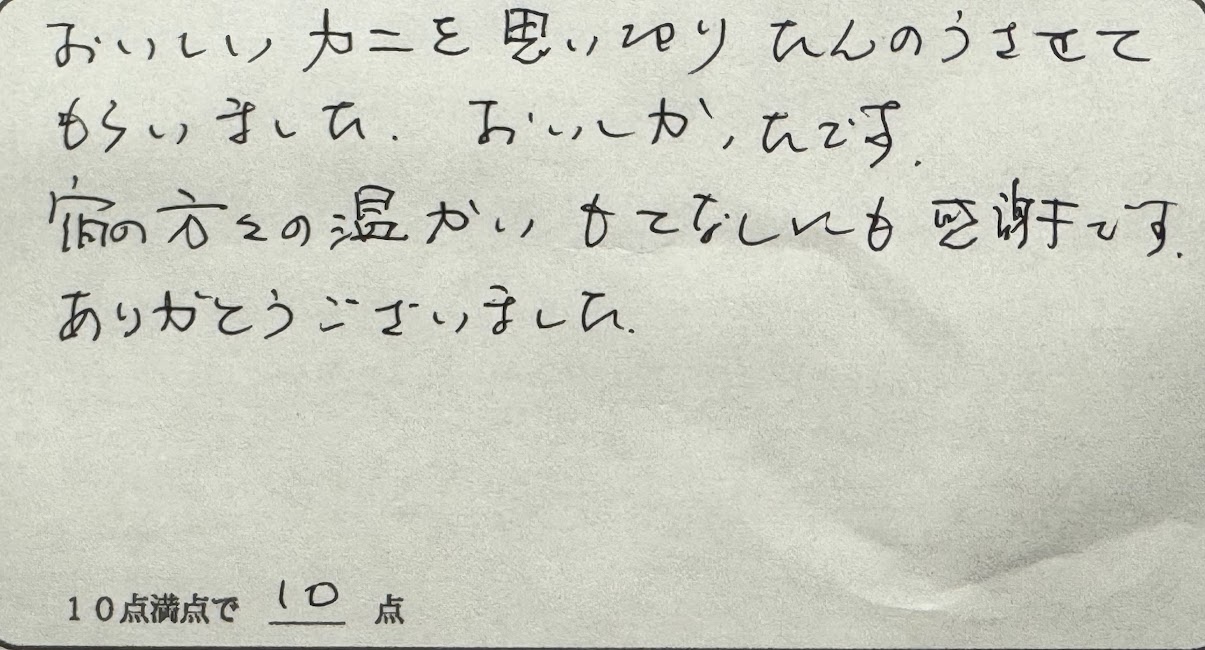 おいしいカニを思い切りたんのうさせて
もらいました. おいしかったです.
宿の方々の温かいもてなしにも感謝です.
ありがとうございました.
10点満点で 10 点